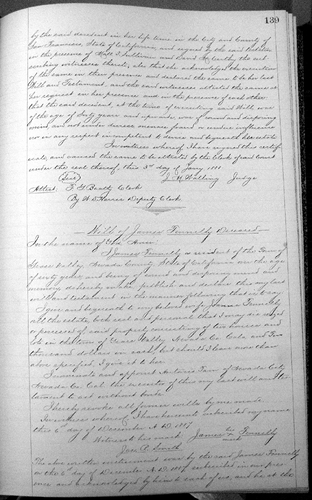 139
by the said decedent in her life time in the City and County of
San Francisco, State of California, and signed by the said decedent
in the presence of
witnesses thereto, also that she acknowledged the execution
of the same in their presence and declared the same to be her last
Will and Testament, and the said witnesses attested the same at
her request in her presence and in the presence of each other
that the said decedent, at the time of executing said Will was
of the age of sixty years and upwards, was of sound and disposing
mind and not under duress, menace, fraud, or undue influence
nor in any respect incompetent to devise and bequeath her estate
In witness whereof I have signed this certifi-
cate, and caused the same to be attested by the Clerk of said Court
under the seal thereof, this 3rd day of Jany 188
Seal J. M. Walling Judge
Attest F. G. Beatty Clerk
By Deputy Clerk
Will of James Fennelly Deceased
In the name of God Amen.
I James Fennelly a resident of the Town of
Grass Valley Nevada County State of California over the age
of sixty years and being of sound and disposing mind and
memory do hereby make publish and declare this my last
will and testament in the manner following that is to say
I give and bequeath to my beloved wife Johanna Fennelly
all the estate, both real and personal that I may die seized
or possessed of said property consisting of two houses and
lots in the town of Grass Valley Nevada Co. Cala and
thousand dollars in cash, but should I leave more than
above specified, I give it to her.
I nominate and appoint Antonio Tam of Nevada City
Nevada Co. Cal the executor of this my last will and tes-
tament to act without bonds.
I hereby revoke all former wills by me made.
In witness whereof, I have hereunto set my hand signature
this 6th day of December A.D. 1887
Witness to his mark James his mark Fennelly
Jas. R. Smith
The above written instrument was by the said James Fennelly
on the 6th day of December A.D. 1887 subscribed in our pres-
ence and acknowledged by him to each of us, and he at the